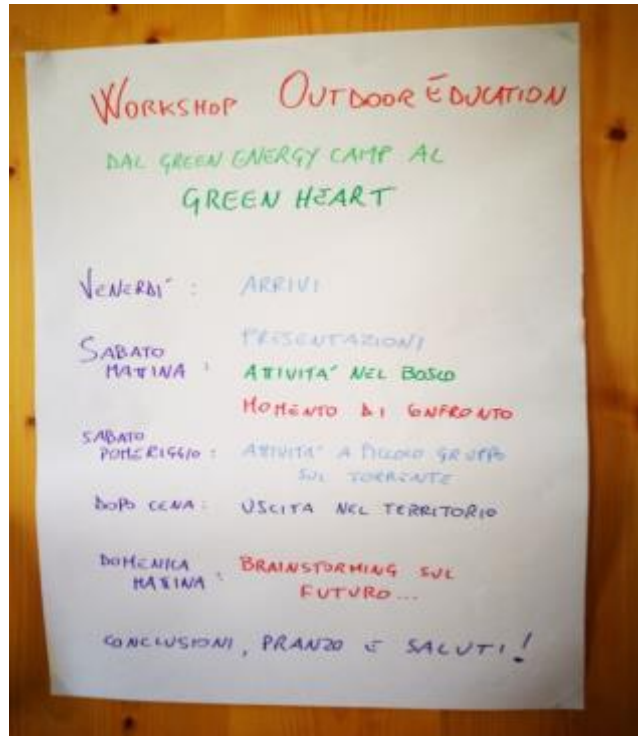 WORKSHOP OUTDOOR EDUCATION
DAL GREEN ENERGY CAMP AL
GREEN HEART
VENERDI' : ARRIVI
PRESENTAZIONI
SABATO
MATTINA : ATTIVITA' NEL BOSCO
MOMENTO DI CONFRONTO
SABATO
POMERIGGIO : ATTIVITA' A PICCOLO GRUPPO
SUL TORRENTE
DOPO CENA : USCITA NEL TERRITORIO
DOMENICA
MATTINA : BRAINSTORMING SUL
FUTURO...
CONCLUSIONI, PRANZO E SALUTI!